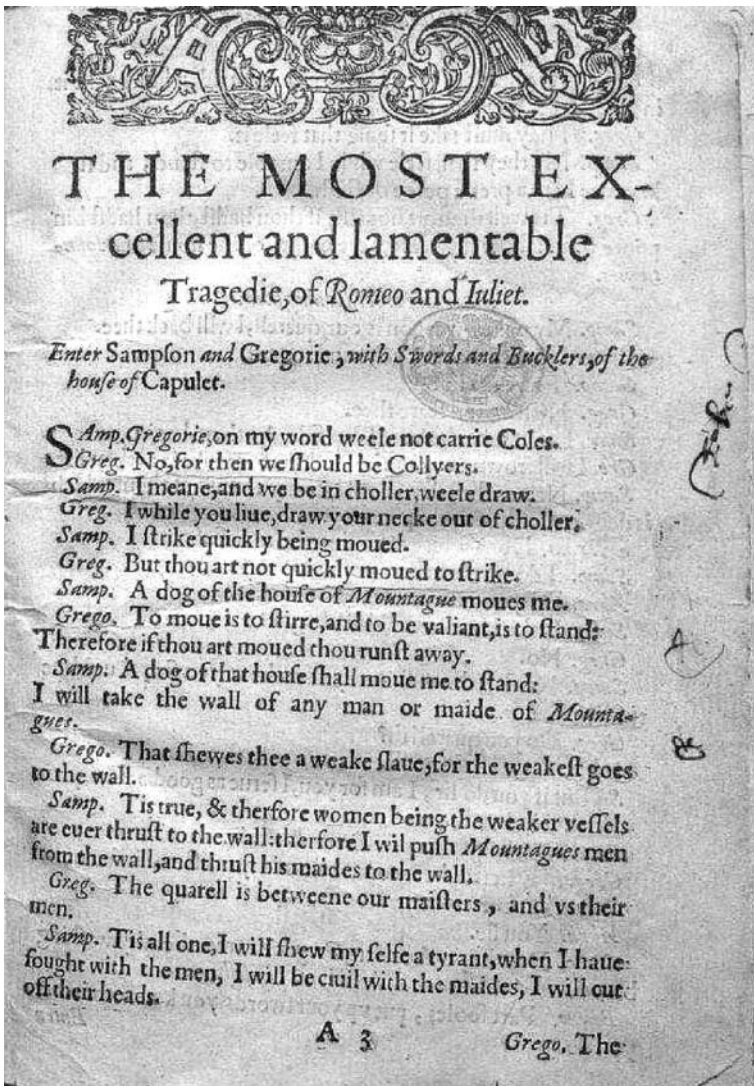 THE MOST EX-
cellent and lamentable
Tragedie, of Romeo and Iuliet.
Enter Sampſon and Gregorie, with Swords and Bucklers, of the
houſe of Capulet.
SAmp. Gregorie, on my word weele not carrie Coles.
Greg. No, for then we ſhould be Collyers.
Samp. I meane, and we be in choller, weele draw.
Greg. I while you liue, draw your necke out of choller.
Samp. I ſtrike quickly being moued.
Greg. But thou art not quickly moued to ſtrike.
Samp. A dog of the houſe of Mountague moues me.
Grego. To moue is to ſtirre, and to be valiant, is to ſtand:
Therefore if thou art moued thou runſt away.
Samp. A dog of that houſe ſhall moue me to ſtand:
I will take the wall of any man or maide of Mounta-
gues.
Grego. That ſhewes thee a weake ſlaue, for the weakeſt goes
to the wall.
Samp. Tis true, & therfore women being the weaker veſſels
are euer thruſt to the wall: therfore I wil puſh Mountagues men
from the wall, and thruſt his maides to the wall.
Greg. The quarell is betweene our maiſters, and vs their
men.
Samp. Tis all one, I will ſhew my ſelfe a tyrant, when I haue
fought with the men, I will be ciuil with the maides, I will cut
off their heads.
A 3 Grego. The